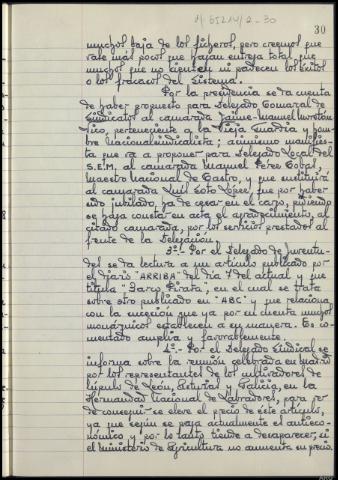 A/6521V/2-30
30
muchos baja de los ficheros, pero creemos que
vale más pocos que hayan entrega total, que
muchos que no sienten ni padecen los éxitos
o los fracasos del Sistema.
Por la presidencia se da cuenta
de haber propuesto para Delegado Comarcal de
Sindicatos al camarada Jaime-Manuel
perteneciente a la Vieja Guardia y hom-
bre nacionalsindicalista; asimismo manifies-
ta que va a proponer para Delegado Local del
S.E.M. al camarada Manuel Pérez Cobas,
Maestro Nacional de Castro, y que sustituirá
al camarada Luis Soto López, que por haber
sido jubilado, ha de cesar en el cargo, pidiendo
se haga constar en acta el agradecimiento, al
citado camarada, por los servicios prestados al
frente de la Delegación.
3º.- Por el Delegado de Juventu-
des se da lectura a un artículo publicado por
el diario "ARRIBA" del día 7 del actual y que
titula "Barco Pirata", en el cual se trata
sobre otro publicado en "ABC" y que relaciona
con la sucesión que ya por su cuenta muchos
monárquicos establecen a su manera. Es co-
mentado amplia y favorablemente.
4º.- Por el Delegado Sindical se
informa sobre la reunión celebrada en Madrid
por los representantes de los cultivadores de
lúpulo de León, Asturias y Galicia, en la
Hermandad Nacional de Labradores, para ver
de conseguir se eleve el precio de éste artículo,
ya que según se paga actualmente es antieco-
nómico y por lo tanto tiende a desaparecer, si
el Ministerio de Agricultura no aumenta su precio.